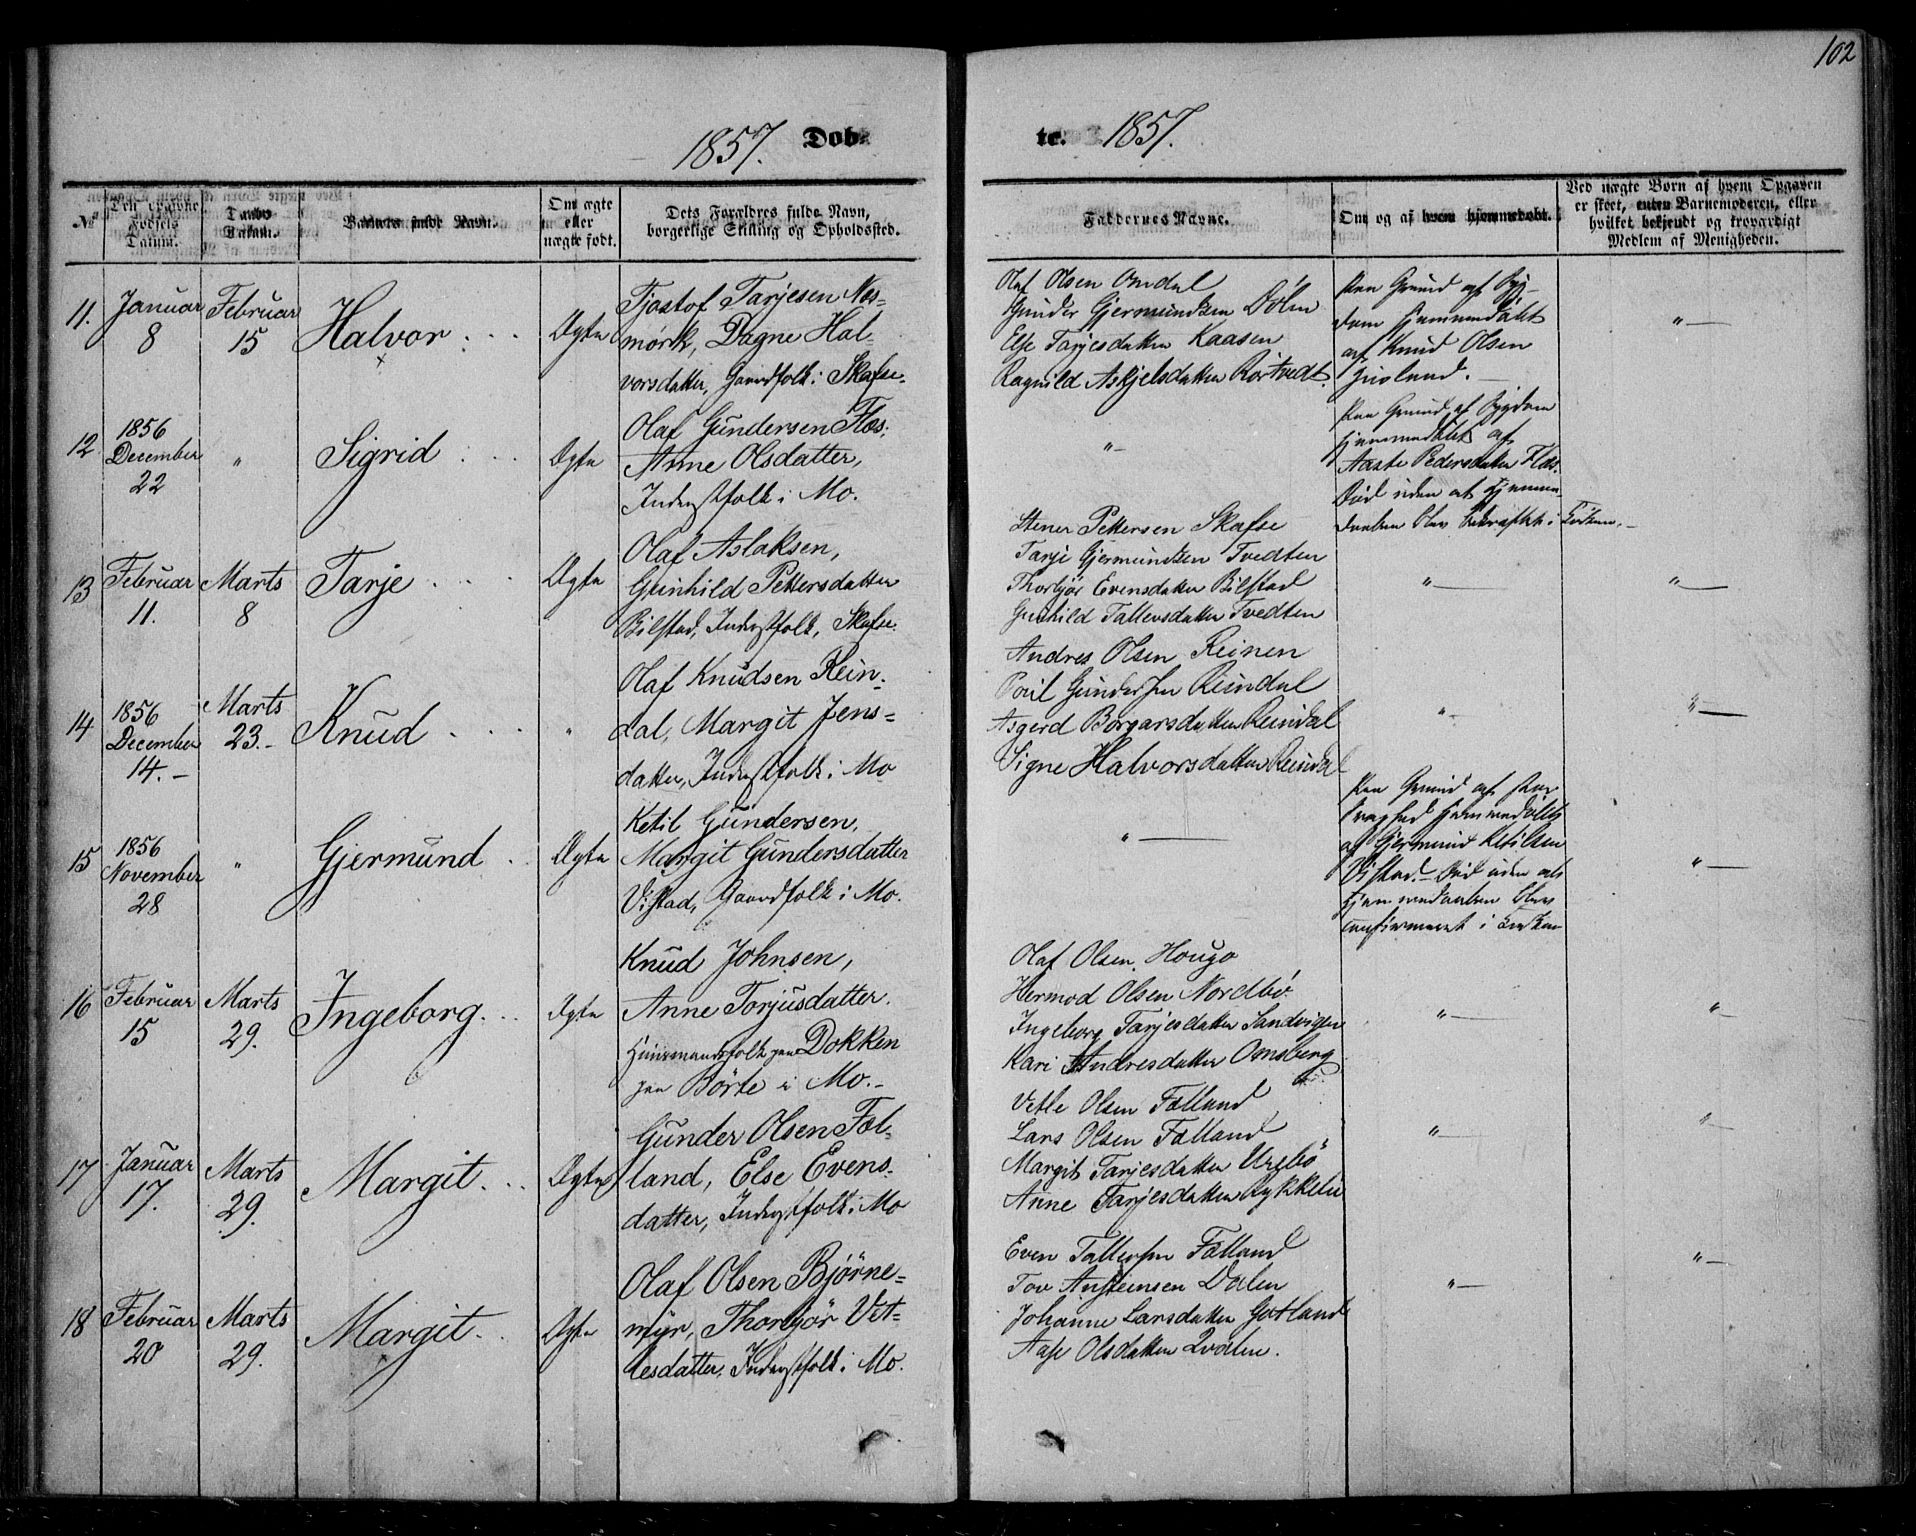 102
1857. Døb-
te. 1857.
No
Den opgivne Fødsels Datum.
Daabs Datum.
Barnets fulde Navn.
Om ægte eller uægte født.
Dets Forældres fulde Navn, borgerlige Stilling og Opholdssted.
Faddernes Navne.
Om og af hvem hjemmedøbt.
Ved uægte Børn af hvem Opgaven er skeet, enten Barnemoderen, eller hvilket bekjendt og troværdigt Medlem af Menigheden.
11.
Januar
8
Februar
15
Halvor
Ægte
Tjostof Tarjesen Næs-
mørk, Dagne Hal-
vorsdatter, Gaardfolk i Skafse.
Olaf Olsen Omdal
Gunder Gjermundsen Dølen
Else Tarjesdatter Kaasen
Ragnild Askjelsdatter Rørtvedt.
Paa Grund af Syg-
dom hjemmedøbt
af Knud Olsen
12
1856
December
22
"
Sigrid
Ægte
Olaf Gundersen Flos,
Anne Olsdatter,
Inderstfolk i Mo.
"
Paa Grund af Sygdom
hjemmedøbt af
Aaste Pedersdatter Flos.
Død uden at hjemme-
daaben blev bekræftet i Kirken.
13
Februar
11.
Marts
8
Tarje
Ægte
Olaf Aslaksen,
Gunhild Pettersdatter
Bilstad, Inderstfolk, Skafse.
Stener Pettersen Skafse
Tarje Gjermundsen Tvedten
Thorbjør Evensdatter Bilstad
Gunhild Tallevsdatter Tvedten
"
"
14
1856
December
14.
Marts
23.
Knud
"
Olaf Knudsen Rein-
dal, Margit Jens-
datter, Inderstfolk i Mo
Andres Olsen Reinen
Poul Gundersen Reindal
Asgerd Borgarsdatter Reindal
Signe Halvorsdatter Reindal
"
"
15
1856
November
28
"
Gjermund
Ægte
Ketil Gundersen,
Margit Gundersdatter
Vistad, Gaardfolk i Mo.
"
Paa Grund af Stor
svaghed hjemmedøbt
af Gjermund Ketilsen
Vistad. Død uden at
hjemmedaaben blev
confirmeret i Kirken
"
16
Februar
15
Marts
29.
Ingeborg
Ægte
Knud Johnsen,
Anne Torjusdatter.
Huusmandsfolk paa Dokken
paa Børte i Mo.
Olaf Olsen Hougo
Hermod Olsen Nordbø
Ingeborg Tarjesdatter Sandvigen
Kari Andresdatter Omsberg
"
"
17
Januar
17.
Marts
29.
Margit
Ægte
Gunder Olsen Fol-
land, Else Evens-
datter, Inderstfolk i Mo
Vetle Olsen Folland
Lars Olsen Folland
Margit Tarjesdatter Urebø
Anne Tarjesdatter Rykkelie
"
"
18
Februar
20
Marts
29.
Margit
Ægte
Olaf Olsen Bjørne-
myr, Thorbjør Vet-
lesdatter, Inderstfolk i Mo.
Even Tallefsen Folland
Tov Anstensen Dalen
Johanne Larsdatter Gotland
Aase Olsdatter
"
"